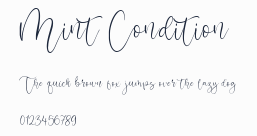 Mint Condition
The quick brown fox jumps over the lazy dog
0123456789